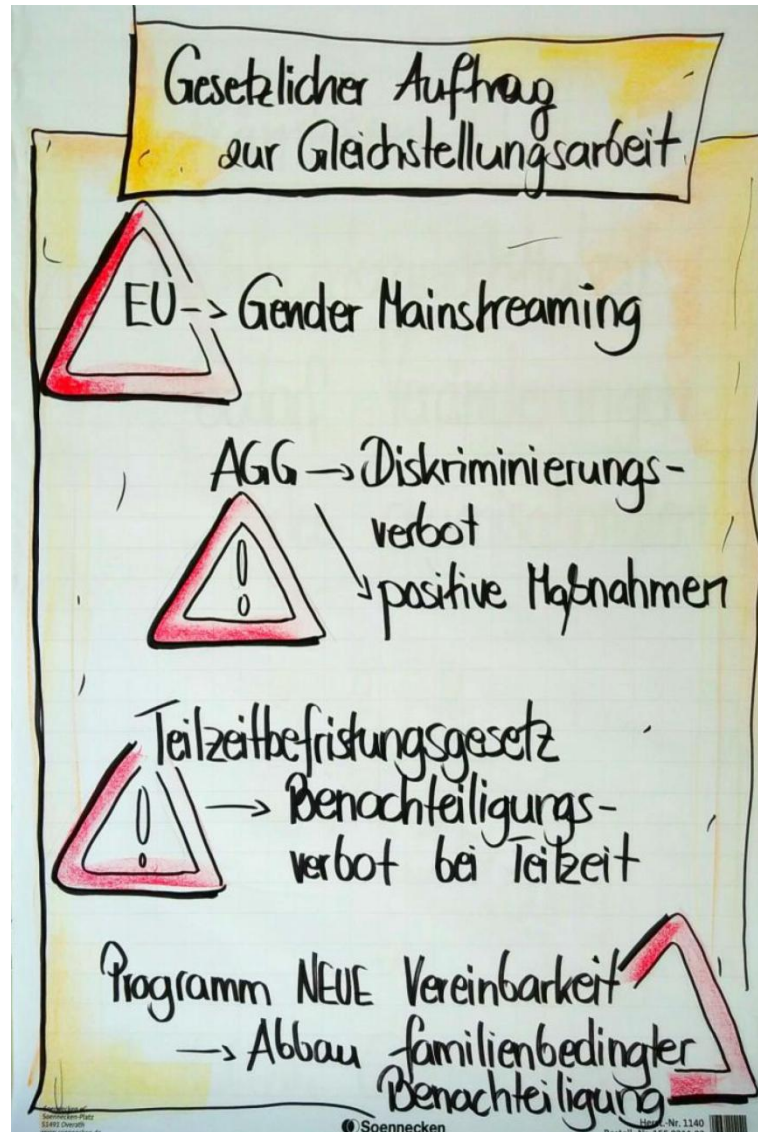 Gesetzlicher Auftrag
zur Gleichstellungsarbeit
EU -> Gender Mainstreaming
AGG -> Diskriminierungs-
verbot
-> positive Maßnahmen
!
Teilzeitbefristungsgesetz
! -> Benachteiligungs-
verbot bei Teilzeit
Programm NEUE Vereinbarkeit
-> Abbau familienbedingter
Benachteiligung
Soennecken-Platz
51491 Overath
Soennecken
Herst.-Nr. 1140